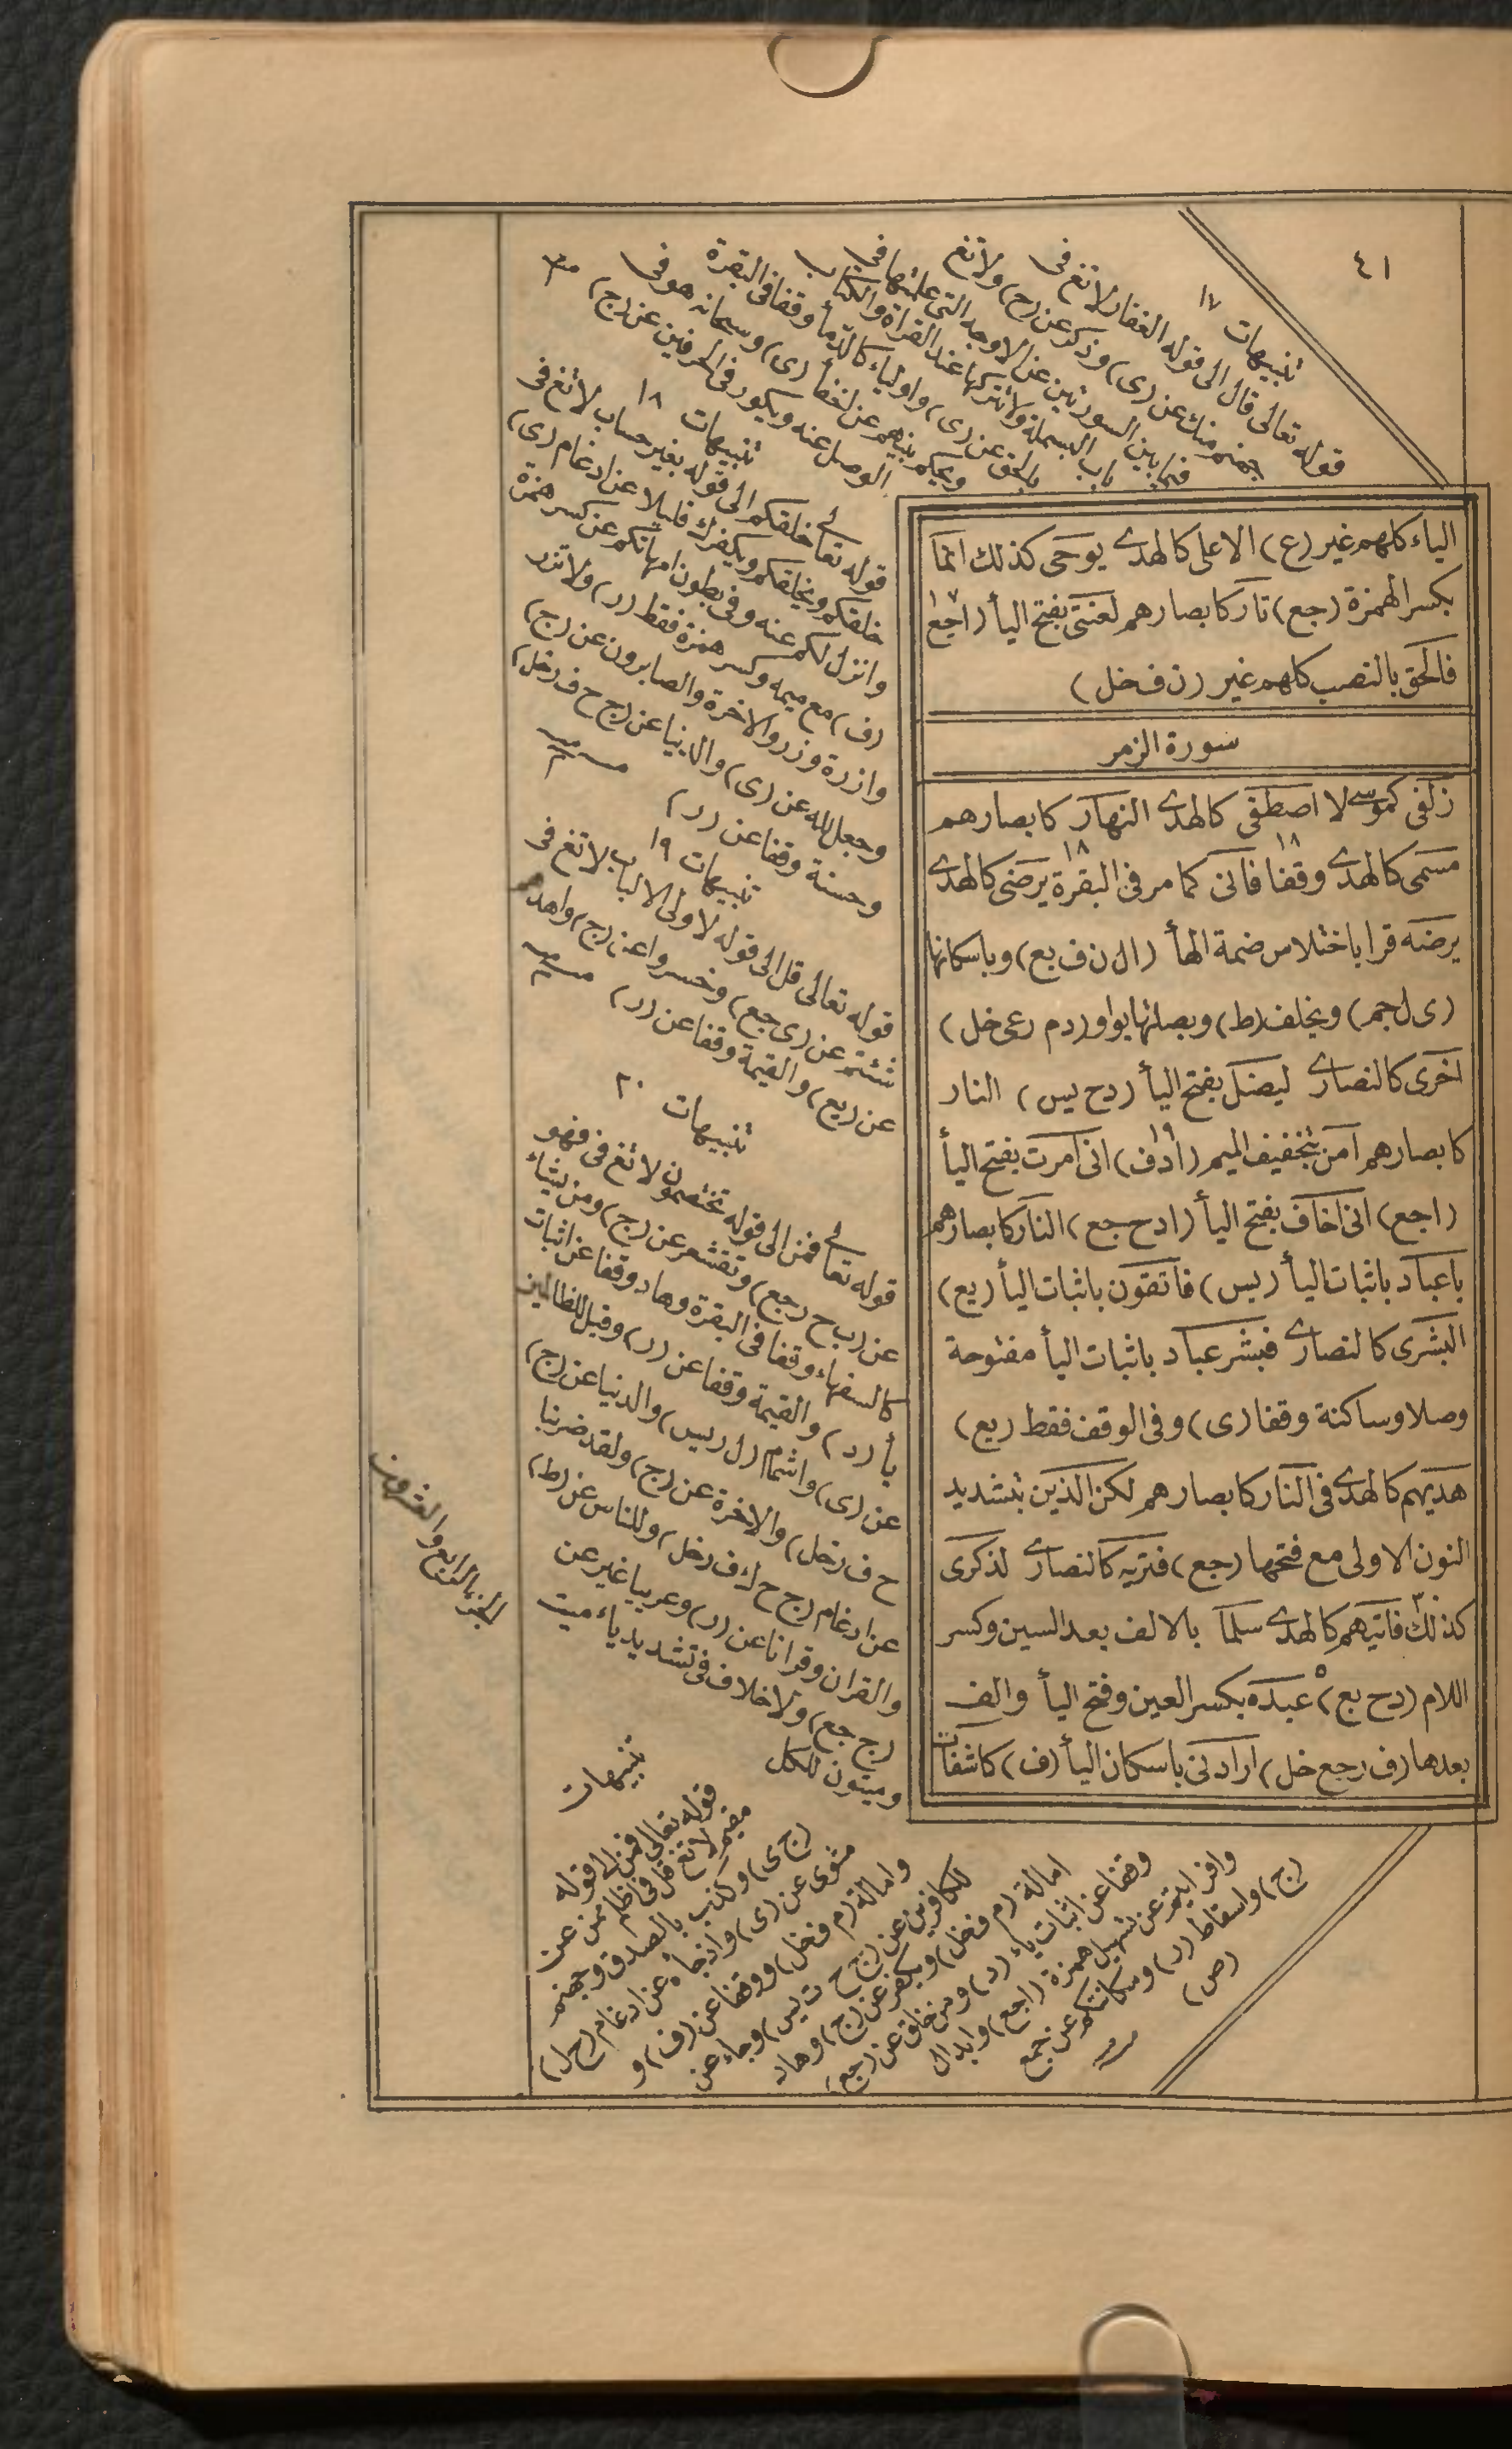 ٤١
الياء كلهم غير (ع) الاعلى كالهدى يوحى كذلك انما
بكسر الهمزة (جع) نار كابصارهم لعنتى بفتح اليأ (اجع)
فالحق بالنصب كلهم غير (ن ف خل)
سورة الزمر
زلفى كموسى لا اصطفى كالهدى النهار كابصارهم
مسمى كالهدى وقفا فانى كما مر فى البقرة يرضى كالهدى
يرضه قرا باختلاس ضمة الهأ (ا ل ن ف يع) وباسكانها
(ى ل جم) وبخلف (ط) وبصلتها بواو (د م ر عى خل)
اخرى كالنصارى ليضل بفتح اليأ (دح يس) النار
كابصارهم امن بتخفيف الميم (ا د ف) انى امرت بفتح اليأ
(اجع) انى اخاف بفتح اليأ (ادح جع) النار كابصارهم
ياعباد باثبات اليأ (يس) فاتقون باثبات اليأ (يع)
البشرى كالنصارى فبشر عباد باثبات اليأ مفتوحة
وصلا وساكنة وقفا (ى) وفى الوقف فقط (يع)
هديهم كالهدى فى النار كابصارهم لكن الذين بتشديد
النون الاولى مع فتحها (جع) فتريه كالنصارى لذكرى
كذلك فاتيهم كالهدى سلما بالالف بعد السين وكسر
اللام (دح يع) عبده بكسر العين وفتح اليأ والف
بعدها (ف ر جع خل) ارادنى باسكان اليأ (ف) كاشفات
تنبيهات ١٧
قوله تعالى قال الى قوله الغفار لا تغ فى
جهنم منك عن (ى) وذكر عن (ج) ولا تغ
فيما بين السورتين عن الاوجه التى علمتها فى
باب البسملة ولا تتركها عند القراة والكتاب
بالحق عن (ى) واولياء كالدمأ وقفا فى البقرة
ويحكم بينهم عن اخفأ (ى) وسبحانه هو فى
الوصل عنه ويكور فى الحرفين عن (ج)
تنبيهات ١٨
قوله تعالى خلقكم الى قوله بغير حساب لا تغ فى
خلقكم ويخلقكم وبكفرك قليلا عن ادغام (ى)
وانزل لكم عنه وفى بطون امهاتكم عن كسر همزة
(ف) مع ميمه وكسر همزة فقط (ر) ولا تزر
وازرة وزر والاخرة والصابرون عن (ج)
وجعل لله عن (ى) والدنيا عن (ج ح ف ر خل)
وحسنة وقفا عن (ر)
تنبيهات ١٩
قوله تعالى قل الى قوله لاولى الالباب لا تغ فى
شئتم عن (ى جع) وخسروا عن (ج) واهد
عن (يع) والقيمة وقفا عن (ر)
تنبيهات ٢٠
قوله تعالى فمن الى قوله تختصمون لا تغ فى فهو
عن (ب ح ر جع) وتقشعر عن (ج) ومن يشاء
كالسفهاء وقفا فى البقرة وهاد وقفا عن اثبات
يأ (د) والقيمة وقفا عن (ر) وقيل للظالمين
عن (ى) واشمام (ل ر يس) والدنيا عن (ج
ح ف ر خل) والاخرة عن (ج) ولقد ضربنا
عن ادغام (ج ح ك ف ر خل) وللناس عن (ط)
والقران وقرانا عن (د) وعربيا غير عن
(ج جع) ولا خلاف فى تشديد ياء ميت
وميتون للكل
تنبيهات
قوله تعالى فمن الى قوله
مقيم لا تغفل فى اظلم ممن عن
(ج ى) وكذب بالصدق وجهنم
مثوى عن (ى) واذ جاءه عن ادغام (ح ل)
وامالة (م ف خل) ووقفا عن (ف) و
للكافرين عن (ج ح ت يس) وجاء عن
امالة (م ف خل) ويكفر عن (ج) وهاد
وقفا عن اثبات ياء (د) ومن خلق عن (جع)
وافرايتم عن تسهيل همزة (ا جع) وابدال
(ج) واسقاط (ر) ومكانتكم عن جمع
(ص)
الجزء الرابع والعشرون